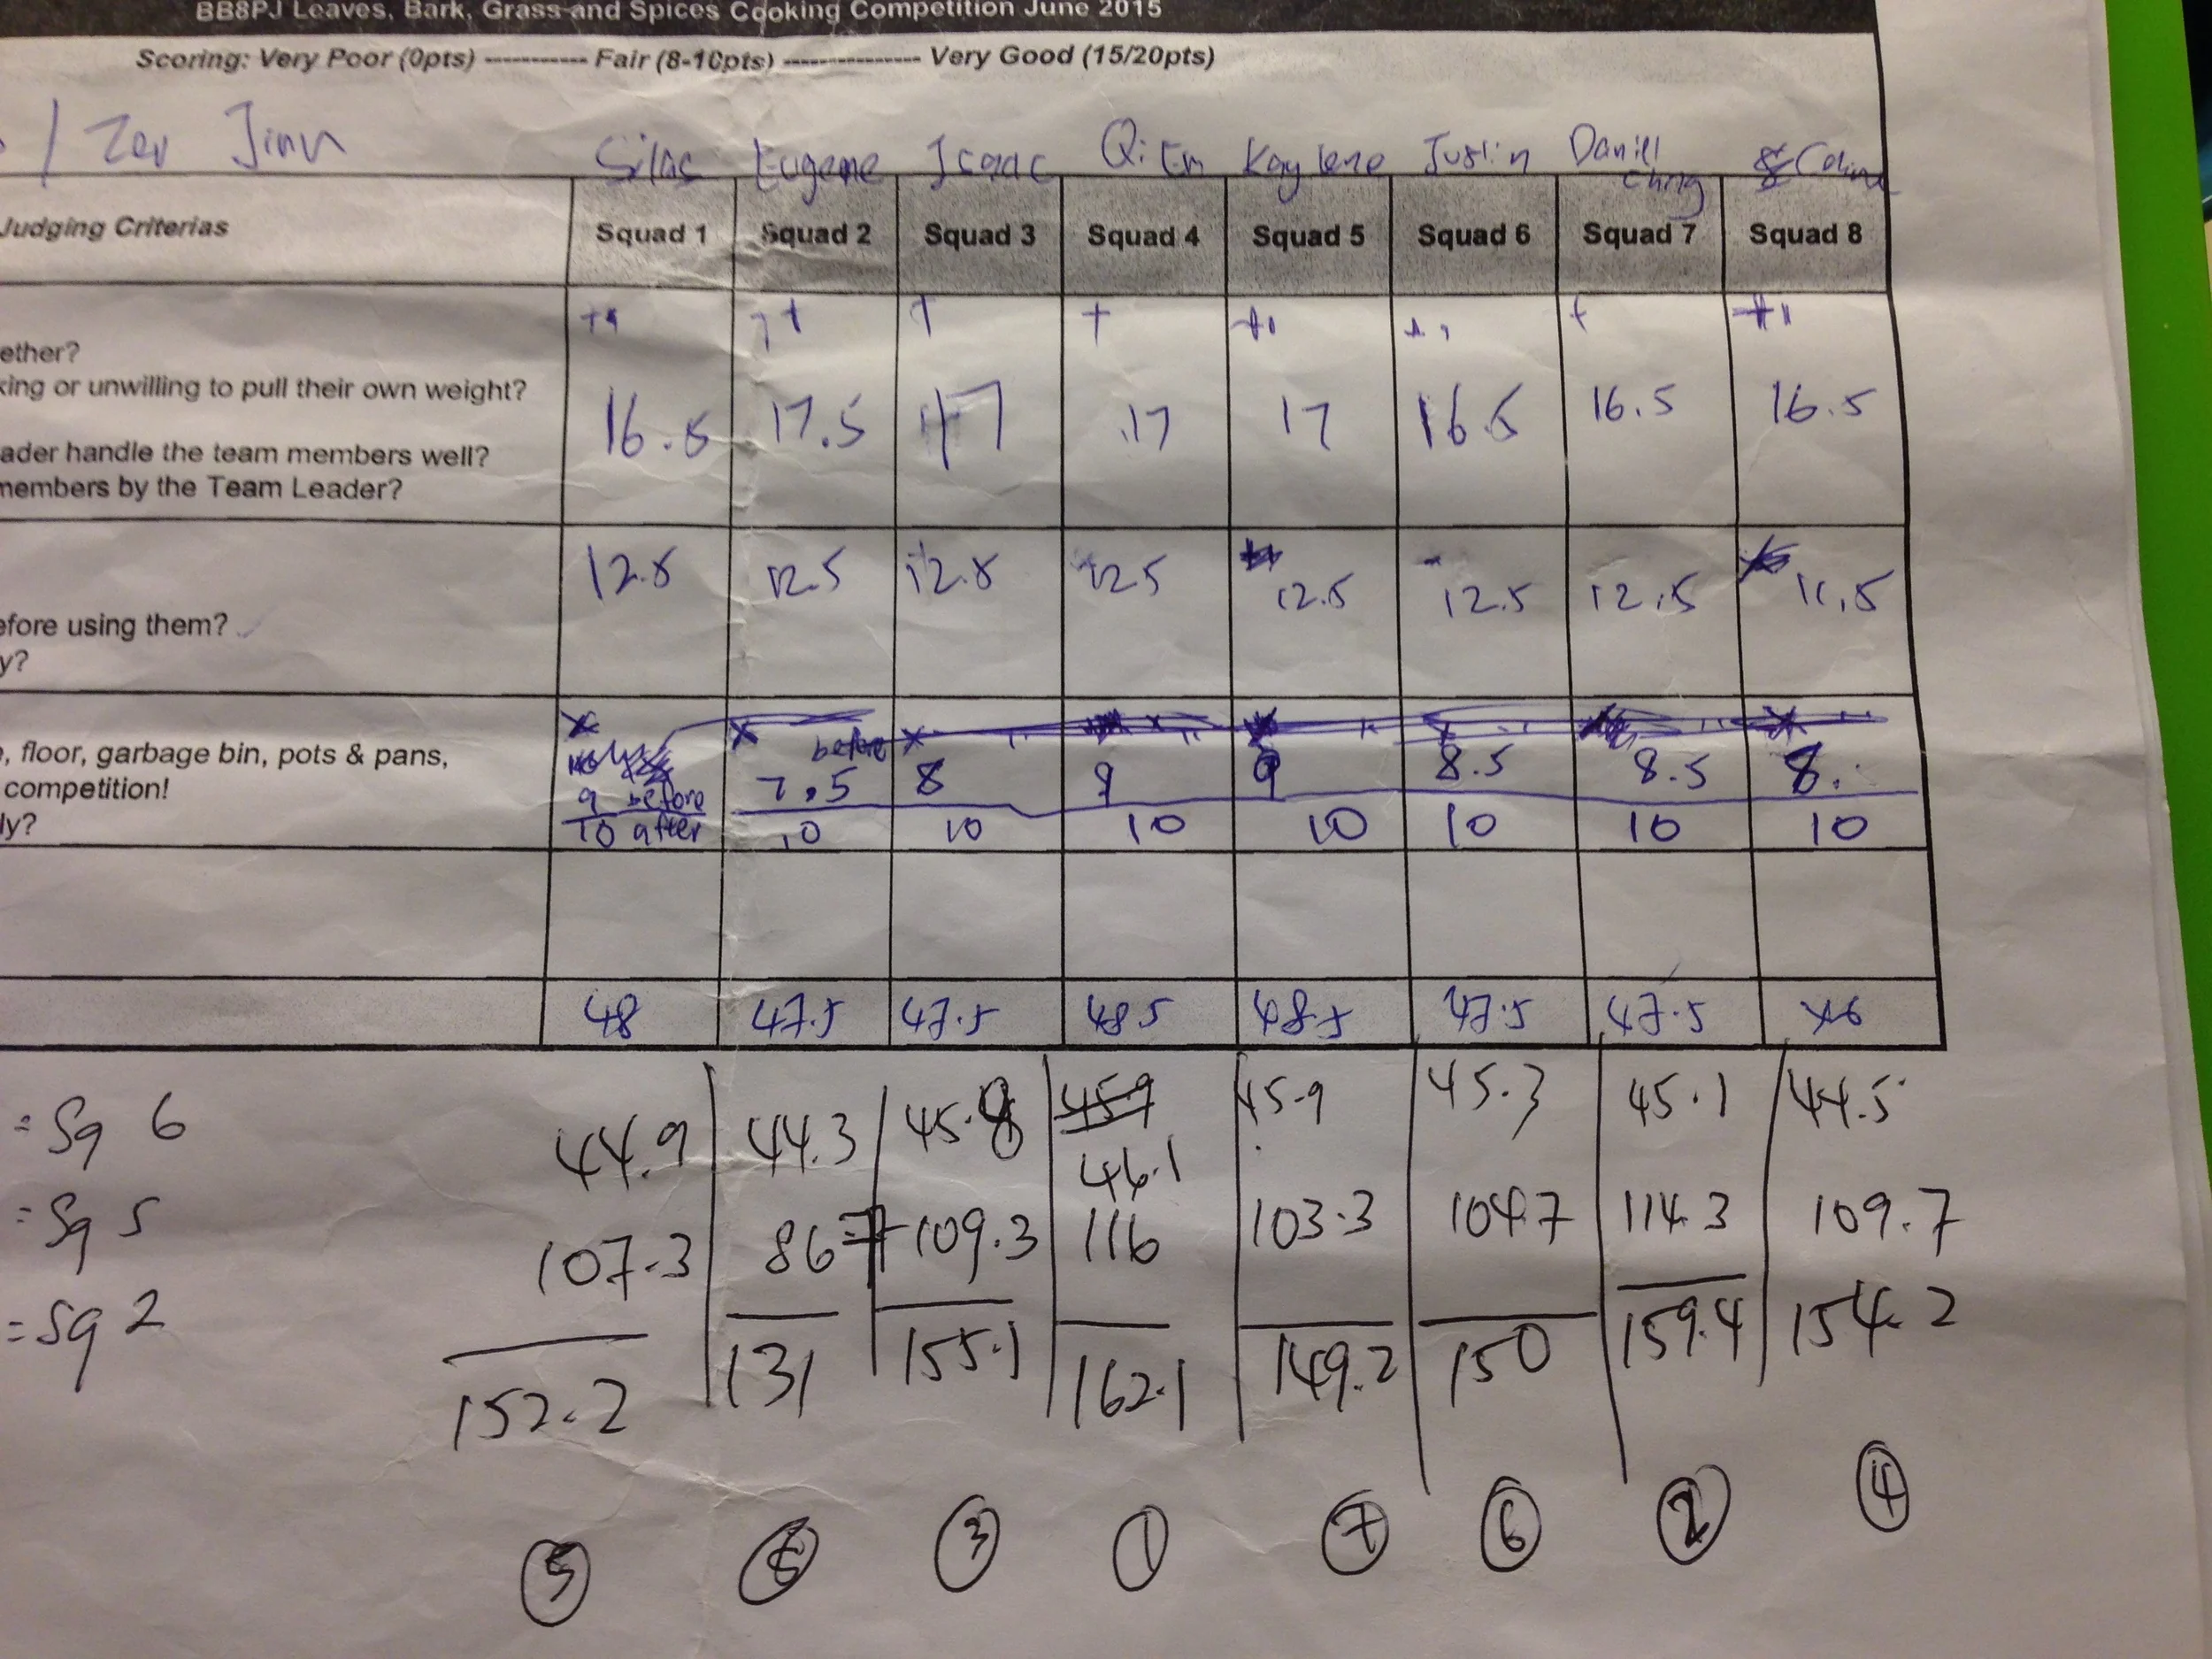 BB8PJ Leaves, Bark, Grass and Spices Cooking Competition June 2015
Scoring: Very Poor (0pts) ----------- Fair (8-10pts) --------------- Very Good (15/20pts)
/ Zev Jinn Silas Eugene Isaac Qi En Kaylene Justin Daniel
Judging Criterias Squad 1 Squad 2 Squad 3 Squad 4 Squad 5 Squad 6 Squad 7 Squad 8
ether?
king or unwilling to pull their own weight?
16.5 17.5 17 17 17 16.5 16.5 16.5
ader handle the team members well?
members by the Team Leader?
12.5 12.5 12.5 12.5 12.5 12.5 12.5 11.5
efore using them?
y?
, floor, garbage bin, pots & pans,
before
competition!
9 before 7.5 8 9 9 8.5 8.5 8.
ly?
10 after 10 10 10 10 10 10 10
48 47.5 47.5 48.5 48.5 47.5 47.5 46
= Sq 6 44.9 44.3 45.8 45.9 45.9 45.3 45.1 44.5
46.1
= Sq 5 107.3 86.7 109.3 116 103.3 104.7 114.3 109.7
= Sq 2 152.2 131 155.1 162.1 149.2 150 159.4 154.2
5 3 1 7 6 2 4